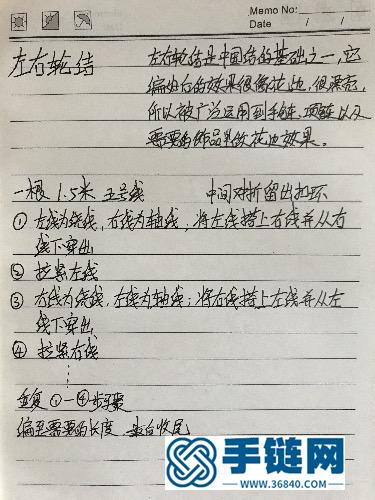 Memo No:
Date / /
左右轮结
左右轮结是中国结的基础之一，它
编出的效果很像花边，很漂亮，
所以被广泛运用到手链、项链以及
需要的饰品乳饮花边效果。
一根 1.5米 五号线 中间对折留出扣环
① 左线为绕线，右线为轴线，将左线搭上右线并从右
线下穿出
② 拉紧左线
③ 右线为绕线，左线为轴线；将右线搭上左线并从左
线下穿出
④ 拉紧右线
重复①—④步骤
编至需要的长度 收尾
手链网
www.36840.com